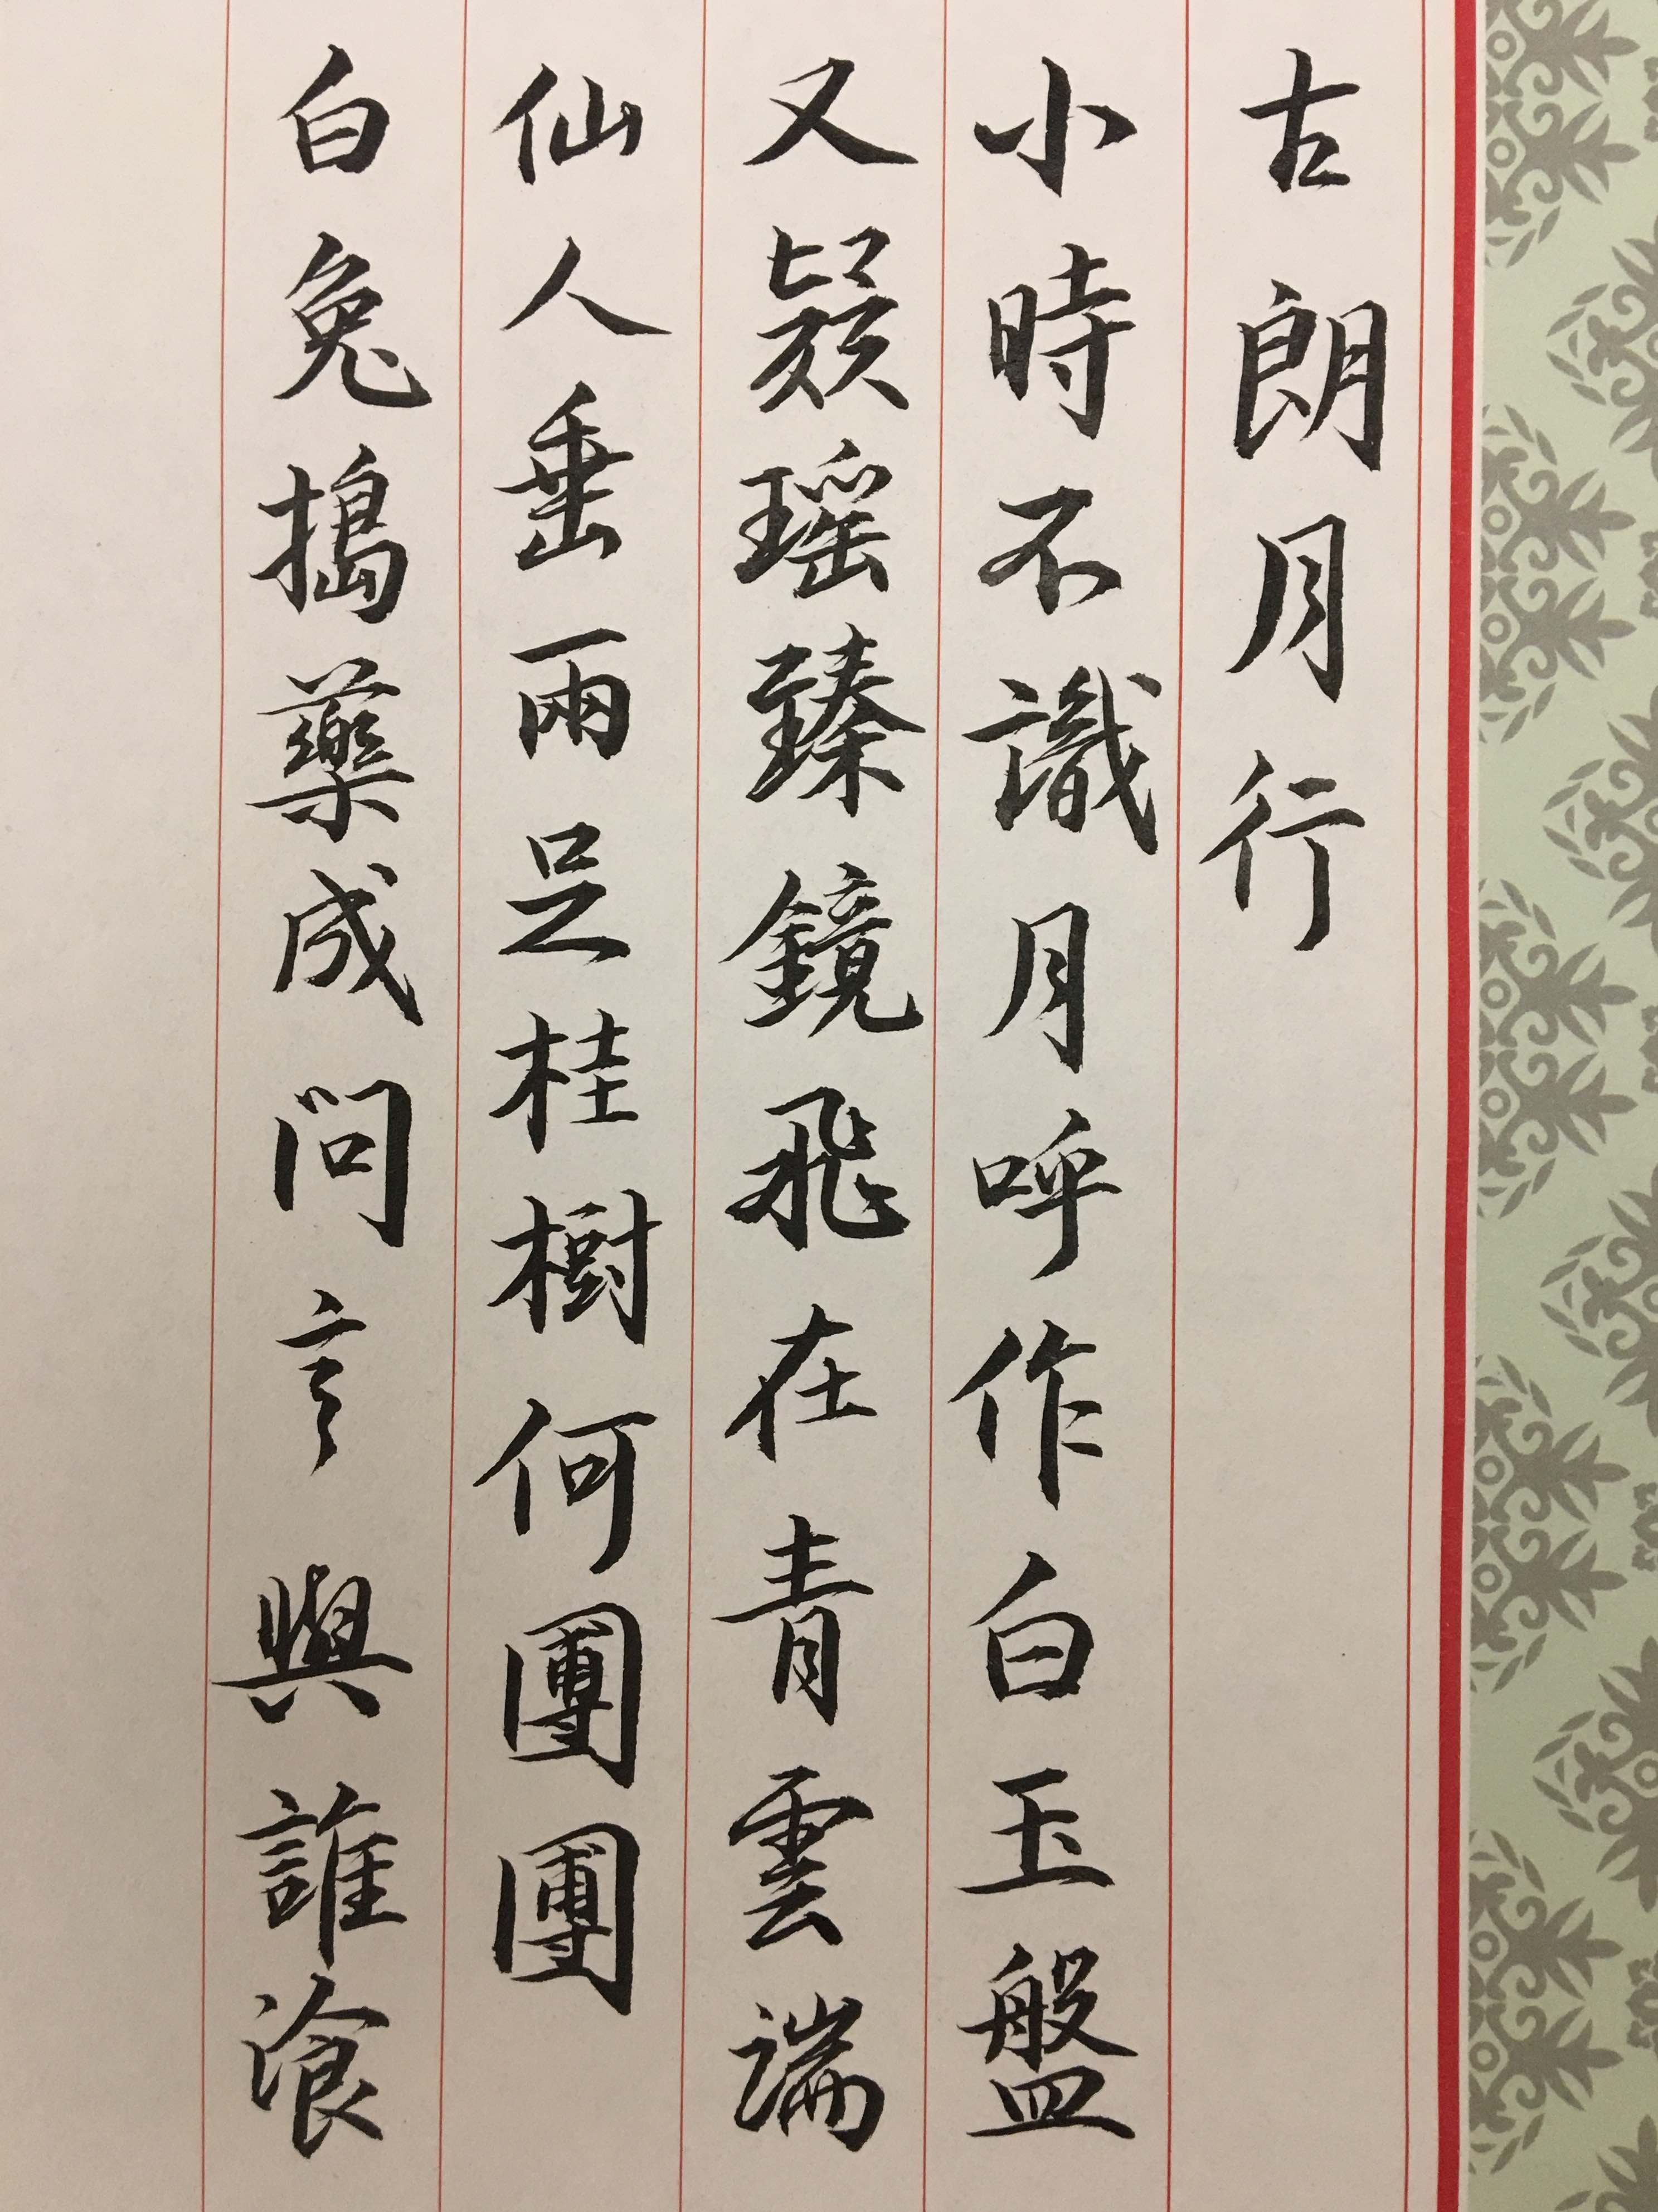 古朗月行
小時不識月呼作白玉盤
又疑瑶臻鏡飛在青雲端
仙人垂兩足桂樹何團團
白兔搗藥成問言與誰飡